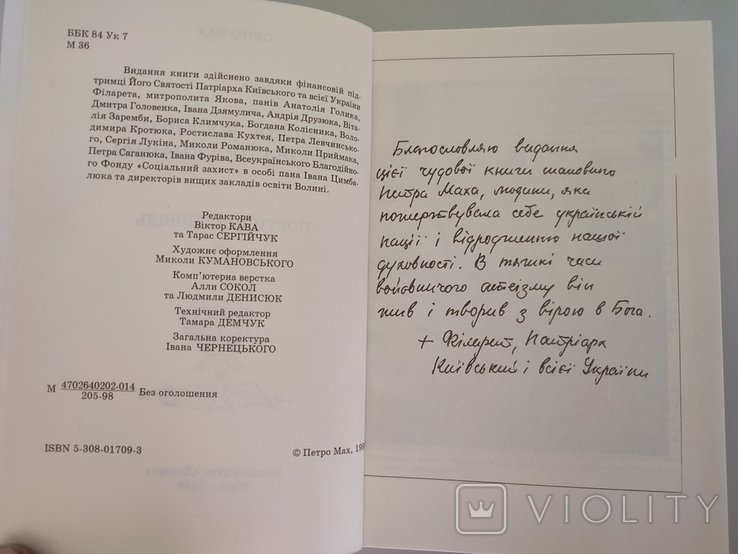 ББК 84 Ук 7
М 36
Видання книги здійснено завдяки фінансовій під-
тримці Його Святості Патріарха Київського та всієї України
Філарета, митрополита Якова, панів Анатолія Голика,
Дмитра Головенка, Івана Дзямулича, Андрія Друзюка, Віта-
лія Заремби, Бориса Климчука, Богдана Колісника, Воло-
димира Кротюка, Ростислава Кухтея, Петра Левчинсько-
го, Сергія Лукіна, Миколи Романюка, Миколи Приймака,
Петра Саганюка, Івана Фуріва, Всеукраїнського Благодійно-
го Фонду «Соціальний захист» в особі пана Івана Цимба-
люка та директорів вищих закладів освіти Волині.
Редактори
Віктор КАВА
та Тарас СЕРГІЙЧУК
Художнє оформлення
Миколи КУМАНОВСЬКОГО
Комп'ютерна верстка
Алли СОКОЛ
та Людмили ДЕНИСЮК
Технічний редактор
Тамара ДЕМЧУК
Загальна коректура
Івана ЧЕРНЕЦЬКОГО
М 4702640202-014
205-98
Без оголошення
ISBN 5-308-01709-3
© Петро Мах, 199
Благословляю видання
цієї чудової книги шановного
Петра Маха, людини, яка
пожертвувала себе українській
нації і відродженню нашої
духовності. В тяжкі часи
войовничого атеїзму він
жив і творив з вірою в Бога.
+ Філарет, Патріарх
Київський і всієї України
VIOLITY